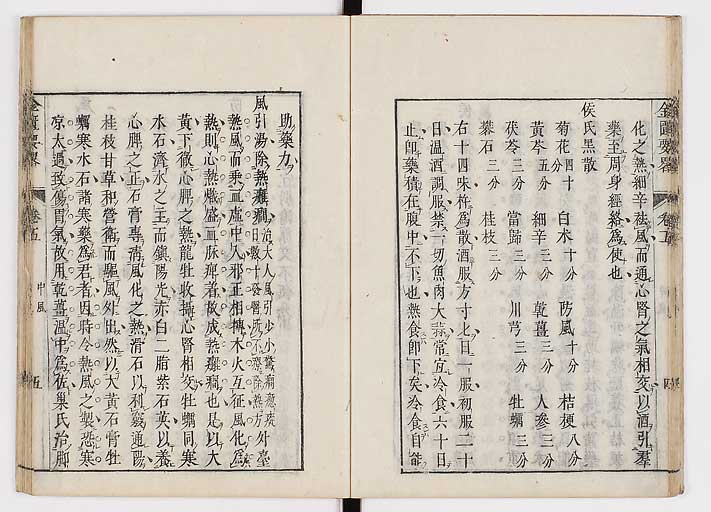 化之熱細辛祛風而通心腎之氣相交以酒引羣
藥至周身經絡爲使也
侯氏黑散
菊花四十分 白朮十分 防風十分 桔梗八分
黃芩五分 細辛三分 乾薑三分 人參三分
茯苓三分 當歸三分 川芎三分 牡蠣三分
礬石三分 桂枝三分
右十四味杵爲散酒服方寸匕日一服初服二十
日温酒調服禁一切魚肉大蒜常宜冷食六十日
止卽藥積在腹中不下也熱食卽下矣冷食自能
金匱要略 卷五
助藥力
風引湯除熱癱癎治大人風引少小驚癎瘈瘲日數十發醫所不療除熱方外臺
熱風而乘血虛中入邪正相摶木火互征風化爲
熱則心熱熾盛血脉痺着故成熱癱癎也是以大
黃下徹心脾之熱龍牡收攝心腎相交牡蠣同寒
水石濟水之主而鎭陽光赤白二脂紫石英以養
心脾之正石膏專淸風化之熱滑石以利竅通陽
桂枝甘草和營衛而驅風外出然以大黃石膏牡
蠣寒水石諸寒藥爲君者因時令熱風之製恐寒
凉太過致傷胃氣故用乾薑温中爲佐巢氏治脚
金匱要略 卷五 中風 五